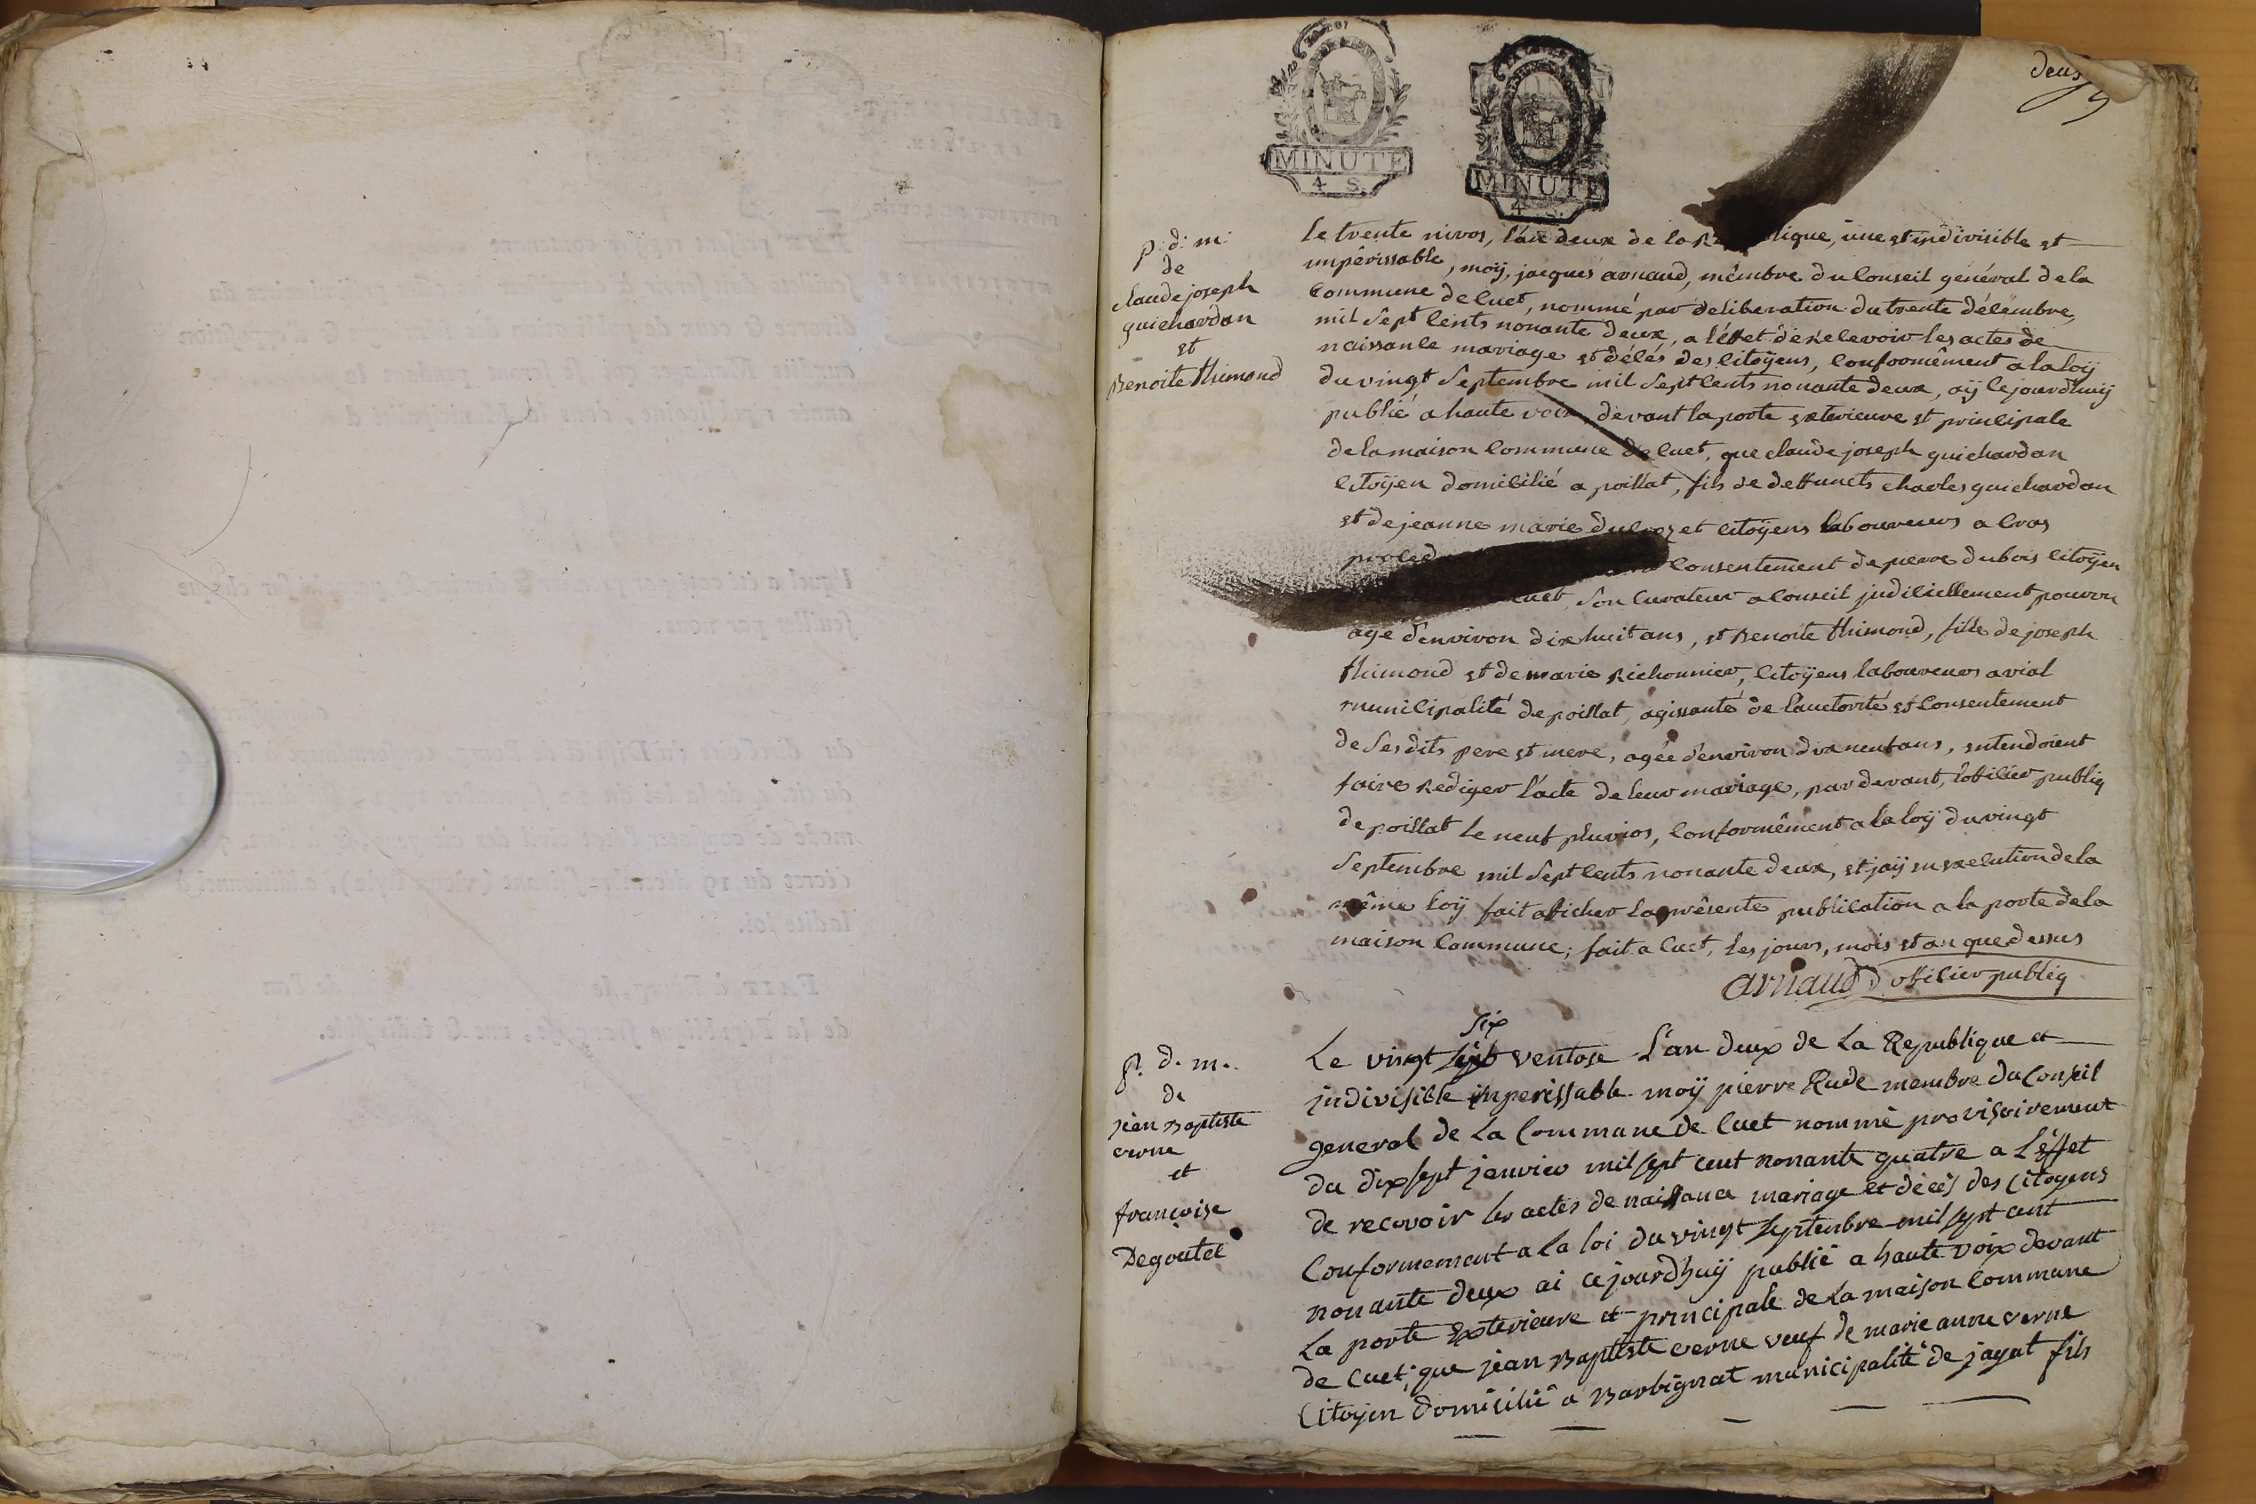 deux
MINUTE
4 S.
MINUTE
4 S.
p: d: m:
de
claude joseph
guichardan
et
Benoite thimond
le trente nivos, l'an deux de la République, une et indivisible et
impérissable, moÿ, jacques arnaud, mêmbre du Conseil genéral de la
Commune de Cuet, nommé par deliberation du trente décembre,
mil Sept Cents nonante deux, a l'éffet de Recevoir les actes de
naissance mariage et décés des Citoÿens, Conformêment a la loÿ
du vingt Septembre mil Sept Cents nonante deux, aÿ Cejourdhuÿ
publié a haute voix, devant la porte exterieure et principale
de la maison Commune de Cuet, que claude joseph guichardan
Citoÿen domicilié a poissat, fils de deffuncts charles guichardan
et de jeanne marie ducroz et Citoÿens laboureurs a Cras
Consentement de pierre dubois Citoÿen
Cuet, Son Curateur a Conseil judiciellement pourvu
age d'environ dix huit ans, et Benoite thimond, fille de joseph
thimond et de marie Richonnier, Citoÿens laboureurs a vial
municipalité de poissat, agissante de l'auctorité et Consentement
de Ses dits pere et mere, agée d'environ dix neuf ans, entendoient
faire Rediger l'acte de leur mariage, par devant, l'officier publiq
de poissat le neuf pluvios, Conformêment a la loÿ du vingt
Septembre mil Sept Cents nonante deux, et jaÿ en execution de la
même loÿ fait afficher la présente publication a la porte de la
maison Commune; fait a Cuet, les jours, mois et an que dessus
arnaud officier publiq
p. d. m.
de
jean Baptiste
verne
et
françoise
Degoutel
six
Le vingt sept ventose L'an deux de La Republique et
jndivisible imperissable moÿ pierre Rude membre du Conseil
general de La Commune de Cuet nommé provisoirement
du dix sept janvier mil sept cent nonante quatre a L'éffet
de recevoir les actes de naissance mariage et décés des Citoyens
Conformement a la loi du vingt septembre mil sept cent
nonante deux ai cejourdhuÿ publié a haute voix devant
La porte Exterieure et principale de La maison Commune
de Cuet, que jean Baptiste verne veuf de marie anne verne
Citoyen domicilié a Barbignat municipalité de jayat fils